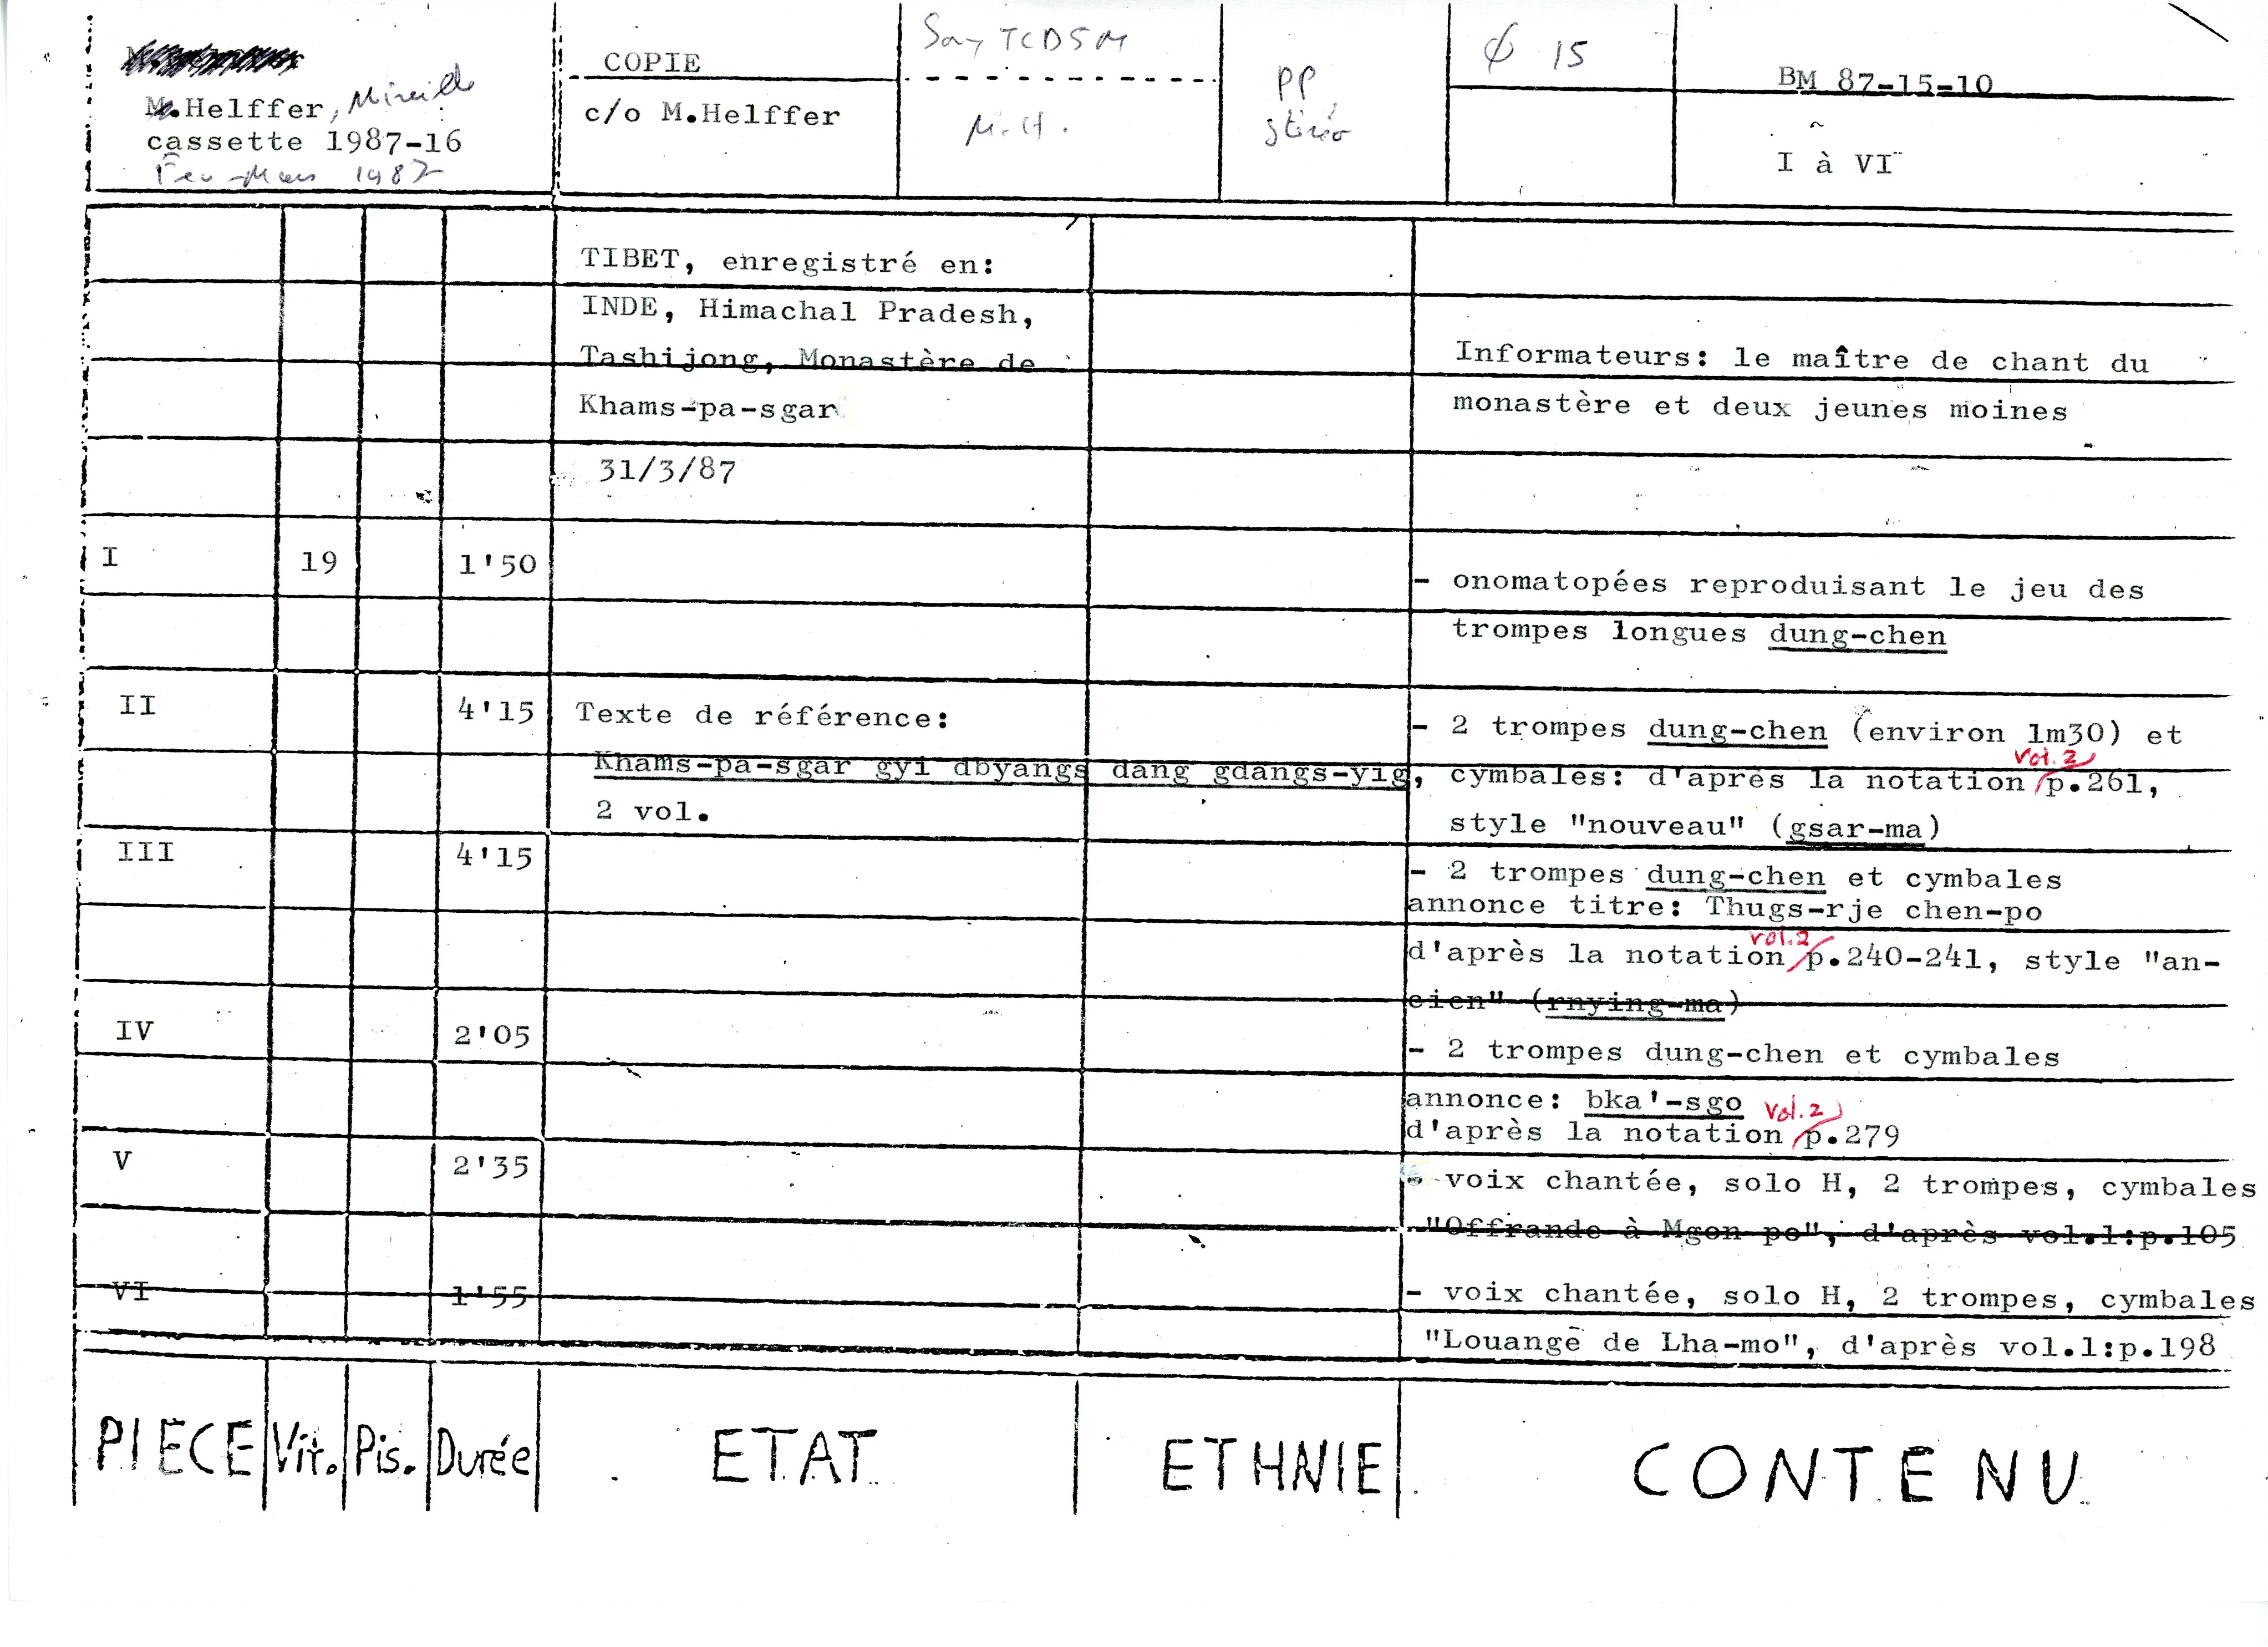 M.Helffer, Mireille
cassette 1987-16
Fev-Mars 1987
COPIE
c/o M.Helffer
Sony TCD5M
M.H.
PP
stéréo
Ø 15
BM 87-15-10
I à VI
TIBET, enregistré en:
INDE, Himachal Pradesh,
Tashijong, Monastère de
Khams-pa-sgar
31/3/87
Informateurs: le maître de chant du
monastère et deux jeunes moines
I 19 1'50
- onomatopées reproduisant le jeu des
trompes longues dung-chen
II 4'15 Texte de référence:
Khams-pa-sgar gyi dbyangs dang gdangs-yig,
2 vol.
- 2 trompes dung-chen (environ 1m30) et
cymbales: d'après la notation vol.2 p.261,
style "nouveau" (gsar-ma)
III 4'15
- 2 trompes dung-chen et cymbales
annonce titre: Thugs-rje chen-po
d'après la notation vol.2 p.240-241, style "an-
cien" (rnying-ma)
IV 2'05
- 2 trompes dung-chen et cymbales
annonce: bka'-sgo
d'après la notation vol.2 p.279
V 2'35
- voix chantée, solo H, 2 trompes, cymbales
"Offrande à Mgon po", d'après vol.1:p.105
VI 1'55
- voix chantée, solo H, 2 trompes, cymbales
"Louange de Lha-mo", d'après vol.1:p.198
PIECE Vit. Pis. Durée ETAT ETHNIE CONTENU